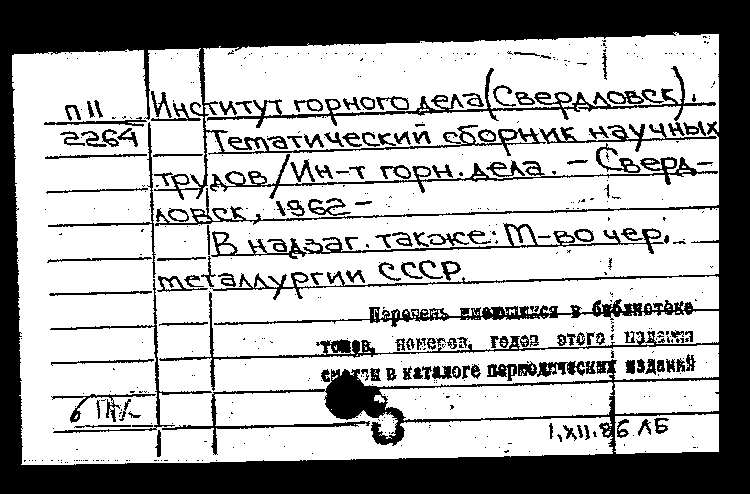 П II Институт горного дела (Свердловск).
2264 Тематический сборник научных
трудов / Ин-т горн. дела. – Сверд-
ловск, 1962 –
В надзаг. также: М-во чер.
металлургии СССР.
Перечень имеющихся в библиотеке
томов, номеров, годов этого издания
смотри в каталоге периодических изданий
1.XII.86 ЛБ